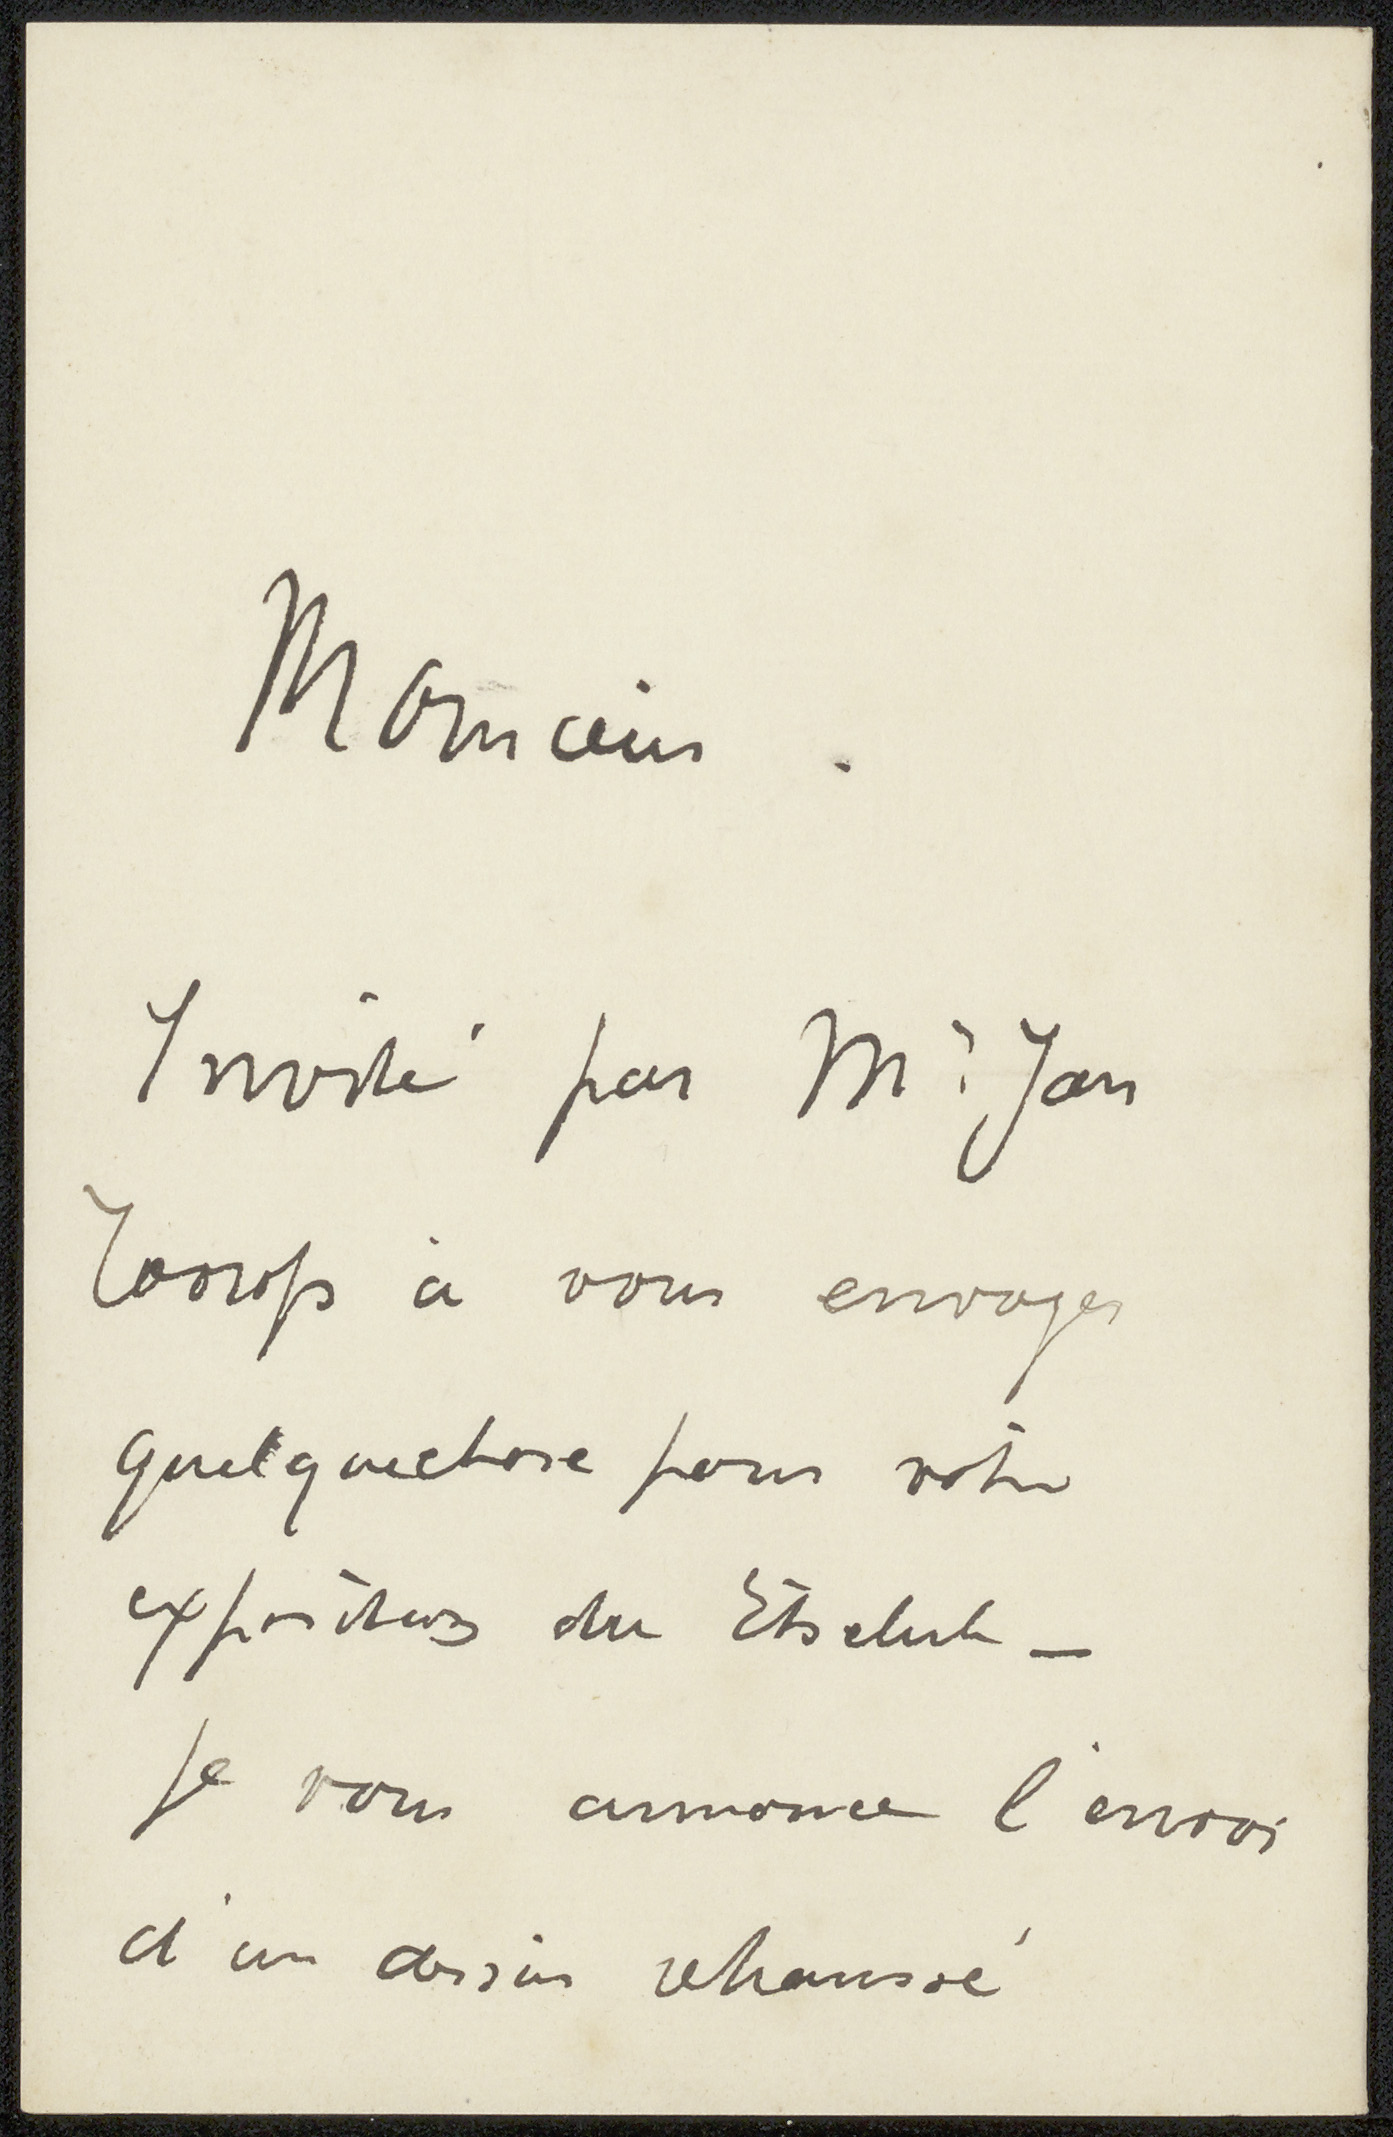 Monsieur.
Invité par Mr Jan
Toorop à vous envoyer
quelquechose pour votre
exposition du Etsclub —
Je vous annonce l'envoi
d'un dessin rehaussé